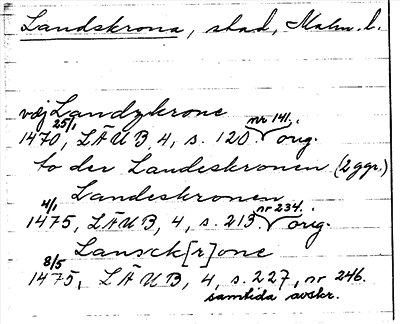 Landskrona, stad, Malm. l.
vdj Landzkrone
25/1 nr 141.
1470, LÄUB 4, s. 120. orig.
to der Landeskronen (2 ggr.)
Landeskronen
4/1 nr 234.
1475, LÄUB, 4, s. 213. orig.
Lansck[r]one
8/5
1475, LÄUB, 4, s. 227, nr 246.
samtida avskr.